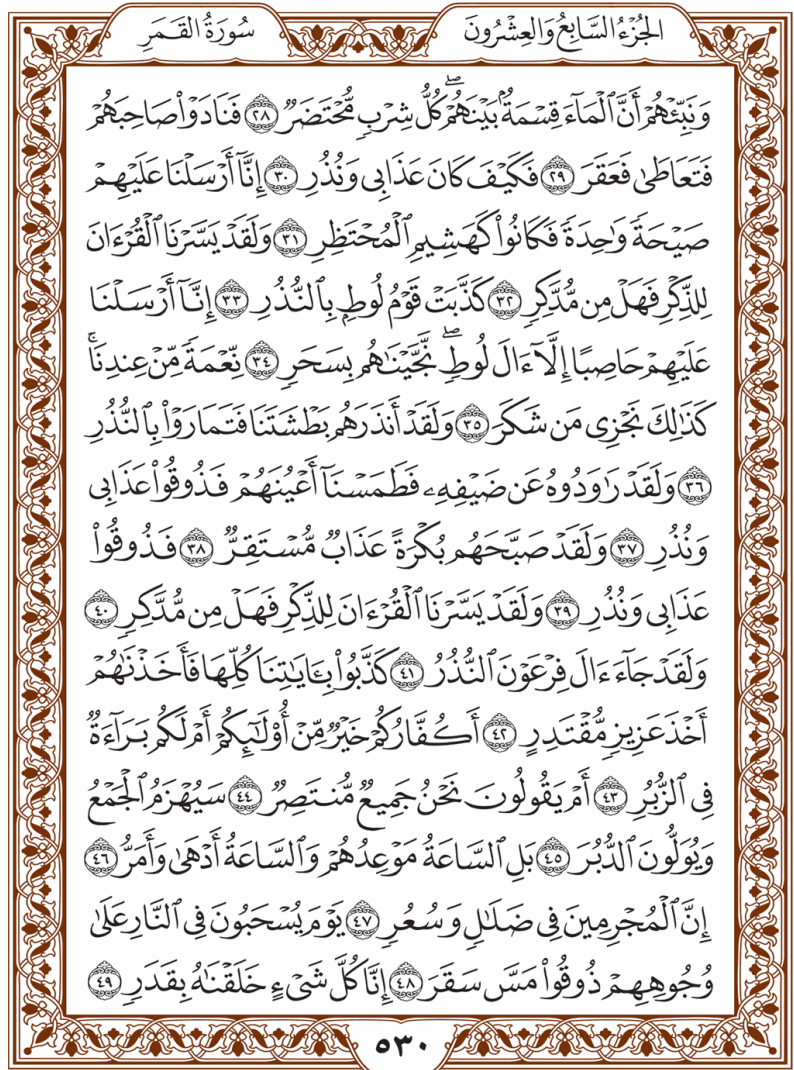 الجُزْءُ السَّابِعُ وَالعِشْرُونَ
سُورَةُ القَمَرِ
وَنَبِّئۡهُمۡ أَنَّ ٱلۡمَآءَ قِسۡمَةُۢ بَيۡنَهُمۡۖ كُلُّ شِرۡبٖ مُّحۡتَضَرٞ ٢٨ فَنَادَوۡاْ صَاحِبَهُمۡ
فَتَعَاطَىٰ فَعَقَرَ ٢٩ فَكَيۡفَ كَانَ عَذَابِي وَنُذُرِ ٣٠ إِنَّآ أَرۡسَلۡنَا عَلَيۡهِمۡ
صَيۡحَةٗ وَٰحِدَةٗ فَكَانُواْ كَهَشِيمِ ٱلۡمُحۡتَظِرِ ٣١ وَلَقَدۡ يَسَّرۡنَا ٱلۡقُرۡءَانَ
لِلذِّكۡرِ فَهَلۡ مِن مُّدَّكِرٖ ٣٢ كَذَّبَتۡ قَوۡمُ لُوطِۭ بِٱلنُّذُرِ ٣٣ إِنَّآ أَرۡسَلۡنَا
عَلَيۡهِمۡ حَاصِبًا إِلَّآ ءَالَ لُوطٖۖ نَّجَّيۡنَٰهُم بِسَحَرٖ ٣٤ نِّعۡمَةٗ مِّنۡ عِندِنَاۚ
كَذَٰلِكَ نَجۡزِي مَن شَكَرَ ٣٥ وَلَقَدۡ أَنذَرَهُم بَطۡشَتَنَا فَتَمَارَوۡاْ بِٱلنُّذُرِ
٣٦ وَلَقَدۡ رَٰوَدُوهُ عَن ضَيۡفِهِۦ فَطَمَسۡنَآ أَعۡيُنَهُمۡ فَذُوقُواْ عَذَابِي
وَنُذُرِ ٣٧ وَلَقَدۡ صَبَّحَهُم بُكۡرَةً عَذَابٞ مُّسۡتَقِرّٞ ٣٨ فَذُوقُواْ
عَذَابِي وَنُذُرِ ٣٩ وَلَقَدۡ يَسَّرۡنَا ٱلۡقُرۡءَانَ لِلذِّكۡرِ فَهَلۡ مِن مُّدَّكِرٖ ٤٠
وَلَقَدۡ جَآءَ ءَالَ فِرۡعَوۡنَ ٱلنُّذُرُ ٤١ كَذَّبُواْ بِـَٔايَٰتِنَا كُلِّهَا فَأَخَذۡنَٰهُمۡ
أَخۡذَ عَزِيزٖ مُّقۡتَدِرٍ ٤٢ أَكُفَّارُكُمۡ خَيۡرٞ مِّنۡ أُوْلَٰٓئِكُمۡ أَمۡ لَكُم بَرَآءَةٞ
فِي ٱلزُّبُرِ ٤٣ أَمۡ يَقُولُونَ نَحۡنُ جَمِيعٞ مُّنتَصِرٞ ٤٤ سَيُهۡزَمُ ٱلۡجَمۡعُ
وَيُوَلُّونَ ٱلدُّبُرَ ٤٥ بَلِ ٱلسَّاعَةُ مَوۡعِدُهُمۡ وَٱلسَّاعَةُ أَدۡهَىٰ وَأَمَرُّ ٤٦
إِنَّ ٱلۡمُجۡرِمِينَ فِي ضَلَٰلٖ وَسُعُرٖ ٤٧ يَوۡمَ يُسۡحَبُونَ فِي ٱلنَّارِ عَلَىٰ
وُجُوهِهِمۡ ذُوقُواْ مَسَّ سَقَرَ ٤٨ إِنَّا كُلَّ شَيۡءٍ خَلَقۡنَٰهُ بِقَدَرٖ ٤٩
٥٣٠